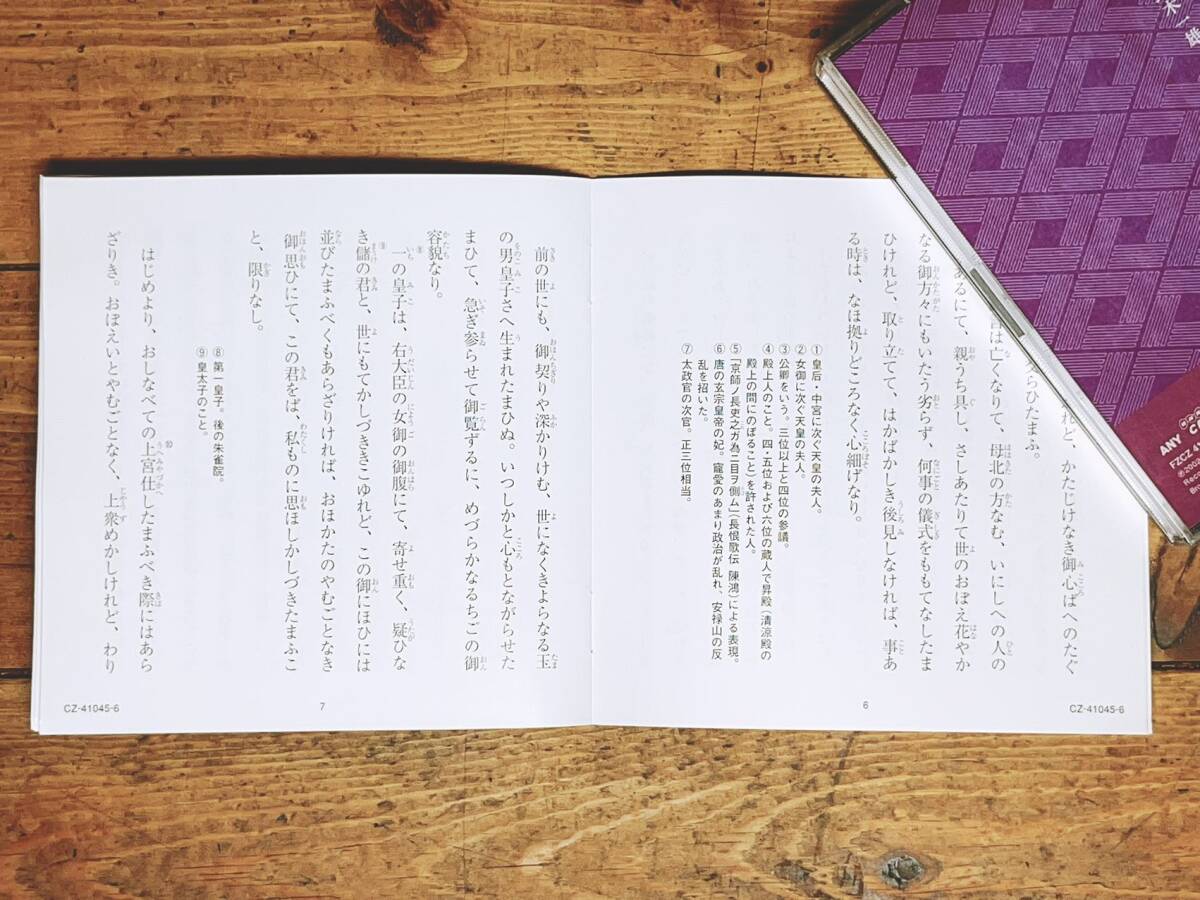 れど、かたじけなき御心ばへのたぐ
らひたまふ。
は亡くなりて、母北の方なむ、いにしへの人の
あるにて、親うち具し、さしあたりて世のおぼえ花やか
なる御方々にもいたう劣らず、何事の儀式をももてなしたま
ひけれど、取り立てて、はかばかしき後見しなければ、事あ
る時は、なほ拠りどころなく心細げなり。
①皇后・中宮に次ぐ天皇の夫人。
②女御に次ぐ天皇の夫人。
③公卿をいう。三位以上と四位の参議。
④殿上人のこと。四・五位および六位の蔵人で昇殿(清涼殿の
殿上の間にのぼること)を許された人。
⑤「京師ノ長吏之ガ為ニ目ヲ側ム」(長恨歌伝 陳鴻)による表現。
⑥唐の玄宗皇帝の妃。寵愛のあまり政治が乱れ、安禄山の反
乱を招いた。
⑦太政官の次官。正三位相当。
6
CZ-41045-6
前の世にも、御契りや深かりけむ、世になくきよらなる玉
の男皇子さへ生まれたまひぬ。いつしかと心もとながらせた
まひて、急ぎ参らせて御覧ずるに、めづらかなるちごの御
容貌なり。
⑧一の皇子は、右大臣の女御の御腹にて、寄せ重く、疑ひな
き⑨儲の君と、世にもてかしづききこゆれど、この御にほひには
並びたまふべくもあらざりければ、おほかたのやむごとなき
御思ひにて、この君をば、私ものに思ほしかしづきたまふこ
と、限りなし。
⑧第一皇子。後の朱雀院。
⑨皇太子のこと。
はじめより、おしなべての⑩上宮仕したまふべき際にはあら
ざりき。おぼえいとやむごとなく、上衆めかしけれど、わり
7
CZ-41045-6
木一雄
ANY
FZCZ 41